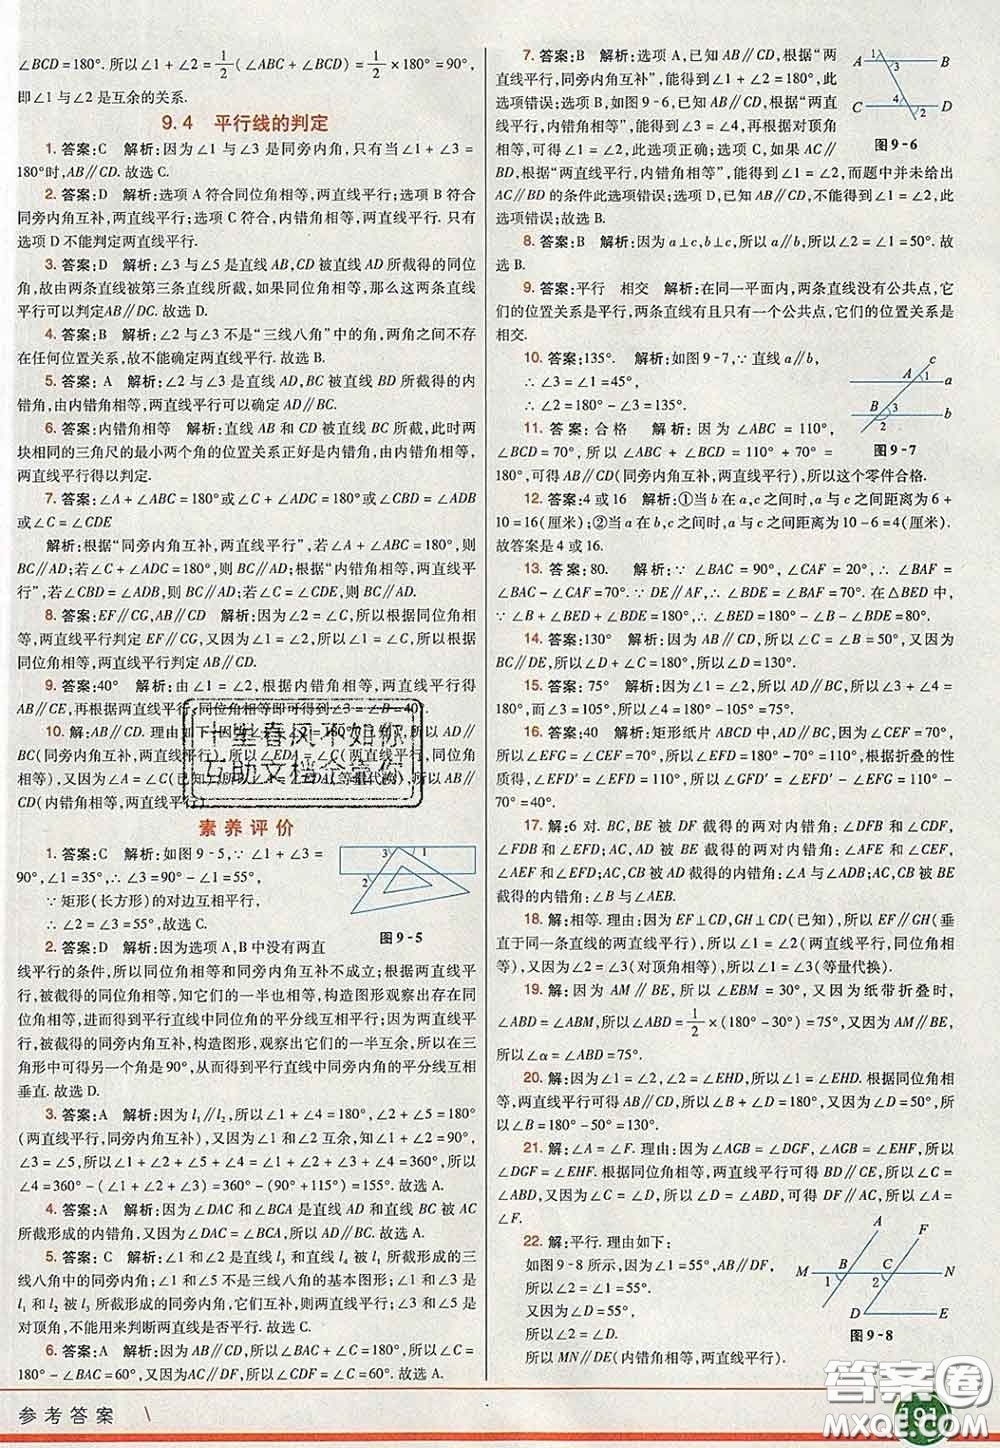 ∠BCD=180°. 所以∠1+∠2=1/2(∠ABC+∠BCD)=1/2×180°=90°,
即∠1与∠2是互余的关系.
9.4 平行线的判定
1. 答案:C 解析:因为∠1与∠3是同旁内角,只有当∠1+∠3=
180°时,AB∥CD. 故选C.
2. 答案:D 解析:选项A符合同位角相等,两直线平行;选项B符合
同旁内角互补,两直线平行;选项C符合,内错角相等,两直线平行. 只有
选项D不能判定两直线平行.
3. 答案:D 解析:∠3与∠5是直线AB,CD被直线AD所截得的同位
角,故由两条直线被第三条直线所截得的同位角相等,那么这两条直线
平行可以判定AB∥DC. 故选D.
4. 答案:B 解析:∠2与∠3不是“三线八角”中的角,两角之间不存
在任何位置关系,故不能确定两直线平行. 故选B.
5. 答案:A 解析:∠2与∠3是直线AD,BC被直线BD所截得的内
错角,由内错角相等,两直线平行可以确定AD∥BC.
6. 答案:内错角相等 解析:直线AB和CD被直线BC所截,此时两
块相同的三角尺的最小两个角的位置关系正好是内错角,由内错角相等,
两直线平行得以判定.
7. 答案:∠A+∠ABC=180°或∠C+∠ADC=180°或∠CBD=∠ADB
或∠C=∠CDE
解析:根据“同旁内角互补,两直线平行”,若∠A+∠ABC=180°,则
BC∥AD;若∠C+∠ADC=180°,则BC∥AD;根据“内错角相等,两直线平
行”,若∠CBD=∠ADB,则BC∥AD;若∠C=∠CDE,则BC∥AD.
8. 答案:EF∥CG,AB∥CD 解析:因为∠2=∠C,所以根据同位角相
等,两直线平行判定EF∥CG,又因为∠1=∠2,所以∠1=∠C,所以根据
同位角相等,两直线平行判定AB∥CD.
9. 答案:40° 解析:由∠1=∠2,根据内错角相等,两直线平行得
AB∥CE,再根据两直线平行,同位角相等即可得到∠3=∠B=40°.
10. 解:AB∥CD. 理由如下:因为
BC(同旁内角互补,两直线平行),所以∠EDA=
AB∥
CD(内错角相等,两直线平行).
素养评价
1. 答案:C 解析:如图9-5,∵∠1+∠3=
90°,∠1=35°,∴∠3=90°-∠1=55°.
∵矩形(长方形)的对边互相平行,
∴∠2=∠3=55°,故选C.
图9-5
2. 答案:D 解析:因为选项A,B中没有两直
线平行的条件,所以同位角相等和同旁内角互补不成立;根据两直线平
行,被截得的同位角相等,知它们的一半也相等,构造图形观察出存在同
位角相等,进而得到平行直线中同位角的平分线互相平行;因为两直线
平行,被截得的同旁内角互补,知它们的一半互余,构造图形,观察出在三
角形中可得另一个角是90°,从而得到平行直线中同旁内角的平分线互相
垂直. 故选D.
3. 答案:A 解析:因为l₁∥l₂,所以∠1+∠4=180°,∠2+∠5=180°
(两直线平行,同旁内角互补),又因为∠1和∠2互余,知∠1+∠2=90°,
∠3=∠5,所以∠1+∠4+∠2+∠5=360°,所以∠4+∠3=360°-90°,所以
∠4=360°-(∠1+∠2+∠3)=360°-(90°+115°)=155°. 故选A.
4. 答案:A 解析:因为∠DAC和∠BCA是直线AD和直线BC被AC
所截形成的内错角,又因为∠DAC=∠BCA,所以AD∥BC. 故选A.
5. 答案:C 解析:∠1和∠2是直线l₃和直线l₄被l₁所截形成的三
线八角中的同旁内角;∠1和∠5不是三线八角的基本图形;∠1和∠2是
l₁和l₂被l₃所截形成的同旁内角,它们互补,则两直线平行;∠3和∠5是
对顶角,不能用来判断两直线是否平行. 故选C.
6. 答案:A 解析:因为AB∥CD,所以∠BAC+∠ACD=180°,所以
180°-∠BAC=180°-∠BAC,所以∠DCA=180°-60°=120°. 故选A.
7. 答案:B 解析:选项A,已知AB∥CD,根据“两
直线平行,同旁内角互补”,能得到∠1+∠2=180°,此
选项错误;选项B,如图9-6,已知AB∥CD,根据“两直
线平行,内错角相等”,能得到∠3=∠4,再根据对顶角
相等,能得到∠1=∠2,此选项正确;选项C,如果AC∥
BD,根据“两直线平行,内错角相等”,能得到∠1=∠2,而题中并未给出
AC∥BD的条件此选项错误;选项D,已知AB∥CD,不能得到∠1=∠2,此
选项错误;故选B.
图9-6
8. 答案:B 解析:因为a⊥c,b⊥c,所以a∥b,所以∠2=∠1=50°. 故
选B.
9. 答案:平行 相交 解析:在同一平面内,两条直线没有公共点,它
们的位置关系是平行,两条直线有且只有一个公共点,它们的位置关系是
相交.
10. 答案:135°. 解析:如图9-7,∵直线a∥b,
∴∠3=∠1=45°,
∴∠2=180°-∠3=135°.
图9-7
11. 答案:合格 解析:因为∠ABC=110°,
∠BCD=70°,所以∠ABC+∠BCD=110°+70°=
180°,可得AB∥CD(同旁内角互补,两直线平行),所以这个零件合格.
12. 答案:4或16 解析:①当b在a,c之间时,a与c之间距离为6+
10=16(厘米);②当a在b,c之间时,a与c之间距离为10-6=4(厘米).
故答案是4或16.
13. 答案:80. 解析:∵∠BAC=90°,∠CAF=20°,∴∠BAF=
∠BAC-∠CAF=70°. ∵DE∥AF,∴∠BDE=∠BAF=70°. 在△BED中,
∵∠B+∠BDE+∠BED=180°,∴∠BED=180°-∠B-∠BDE=80°.
14. 答案:130° 解析:因为AB∥CD,所以∠C=∠B=50°,又因为
BC∥DE,所以∠D+∠C=180°,所以∠D=130°.
15. 答案:75° 解析:因为∠1=∠2,所以a∥b,所以∠3+∠4=
180°,而∠3=105°,所以∠4=180°-105°=75°.
16. 答案:40 解析:矩形纸片ABCD中,AD∥BC,因为∠EFG=
70°,所以∠EFG=∠FEG=∠EFG(内错角相等),根据折叠的性
质得,∠EFD'=∠EFD,∠GFD'=∠EFD'-∠EFG,所以∠GFD'=110°-
70°=40°.
17. 解:6对. BC,BE被DF截得的两对内错角:∠DFB和∠CDF,
∠FDB和∠EFD;AC,BC被BE截得的两对内错角:∠AFE和∠CEF,
∠AEF和∠EFD;AC,CB被AD截得的内错角:∠BAE和∠C;AC,CB被BE
截得的内错角:∠B与∠AEB.
18. 解:相等. 理由:因为EF⊥CD,GH⊥CD(已知),所以EF∥GH(垂
直于同一条直线的两直线平行),所以∠2=∠3(两直线平行,同位角相等).
因为∠1=∠2(对顶角相等),所以∠1=∠3(等量代换).
19. 解:因为AM∥BE,所以∠EBM=30°,又因为纸带折叠时,
∠ABD=∠ABM,所以∠ABD=1/2×(180°-30°)=75°,又因为AM∥BE,
所以∠α=∠ABD=75°.
20. 解:因为∠1=∠2,∠2=∠EHD,所以∠1=∠EHD. 根据同位角相
等,两直线平行可得AB∥CD,所以∠B+∠D=180°,又因为∠D=50°,所
以∠B=180°-50°=130°.
21. 解:∠A=∠F. 理由:因为∠AGB=∠DGF,∠AGB=∠EHF,所以
∠DGF=∠EHF. 根据同位角相等,两直线平行可得BD∥CE,所以∠C=
∠ABD,又因为∠C=∠D,所以∠D=∠ABD,可得DF∥AC,所以∠A=
∠F.
22. 解:平行. 理由如下:
如图9-8所示,因为∠1=55°,
所以∠ABN=∠1=55°. 因为AB∥DF,
所以∠2=∠ABN=55°.
又因为∠D=55°,
所以∠2=∠D=55°.
所以MN∥DE(内错角相等,两直线平行).
图9-8
参考答案
191
答案圈
MXQE.COM
十里春风不如你
互助文档